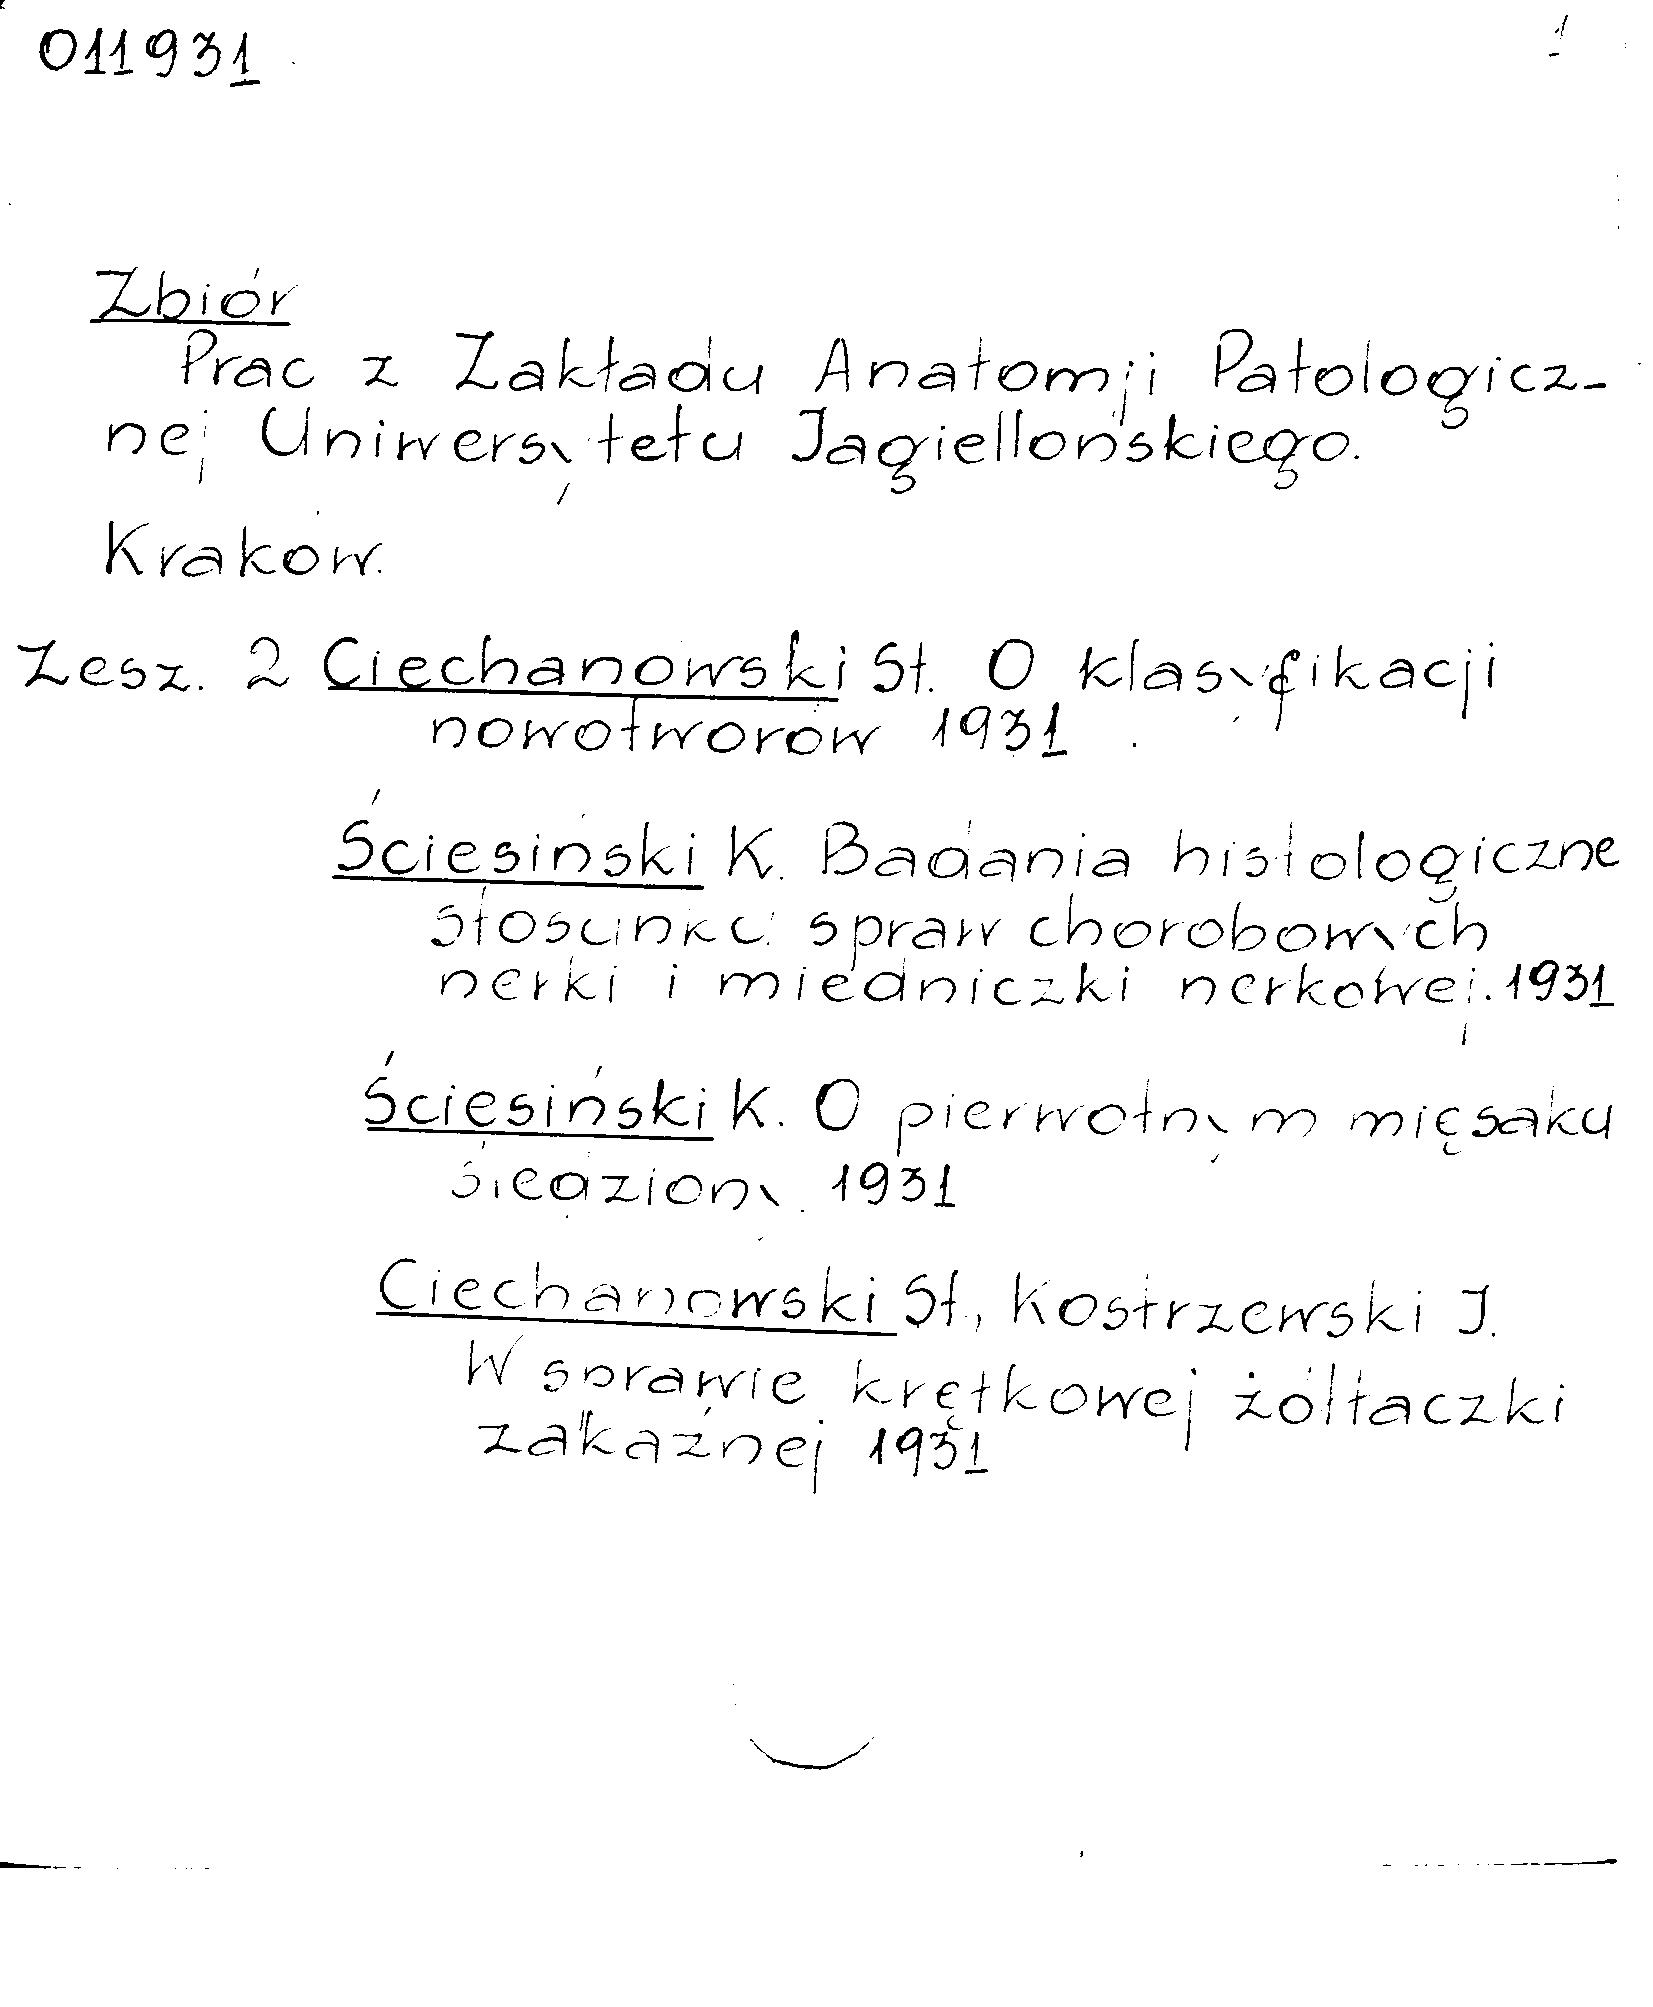 011931
1
Zbiór
Prac z Zakładu Anatomji Patologicz-
nej Uniwersytetu Jagiellońskiego.
Kraków.
Zesz. 2 Ciechanowski St. O klasyfikacji
nowotworów 1931
Ściesiński K. Badania histologiczne
stosunku spraw chorobowych
nerki i miedniczki nerkowej. 1931
Ściesiński K. O pierwotnym mięsaku
śledziony. 1931
Ciechanowski St., Kostrzewski J.
W sprawie krętkowej żółtaczki
zakaźnej 1931